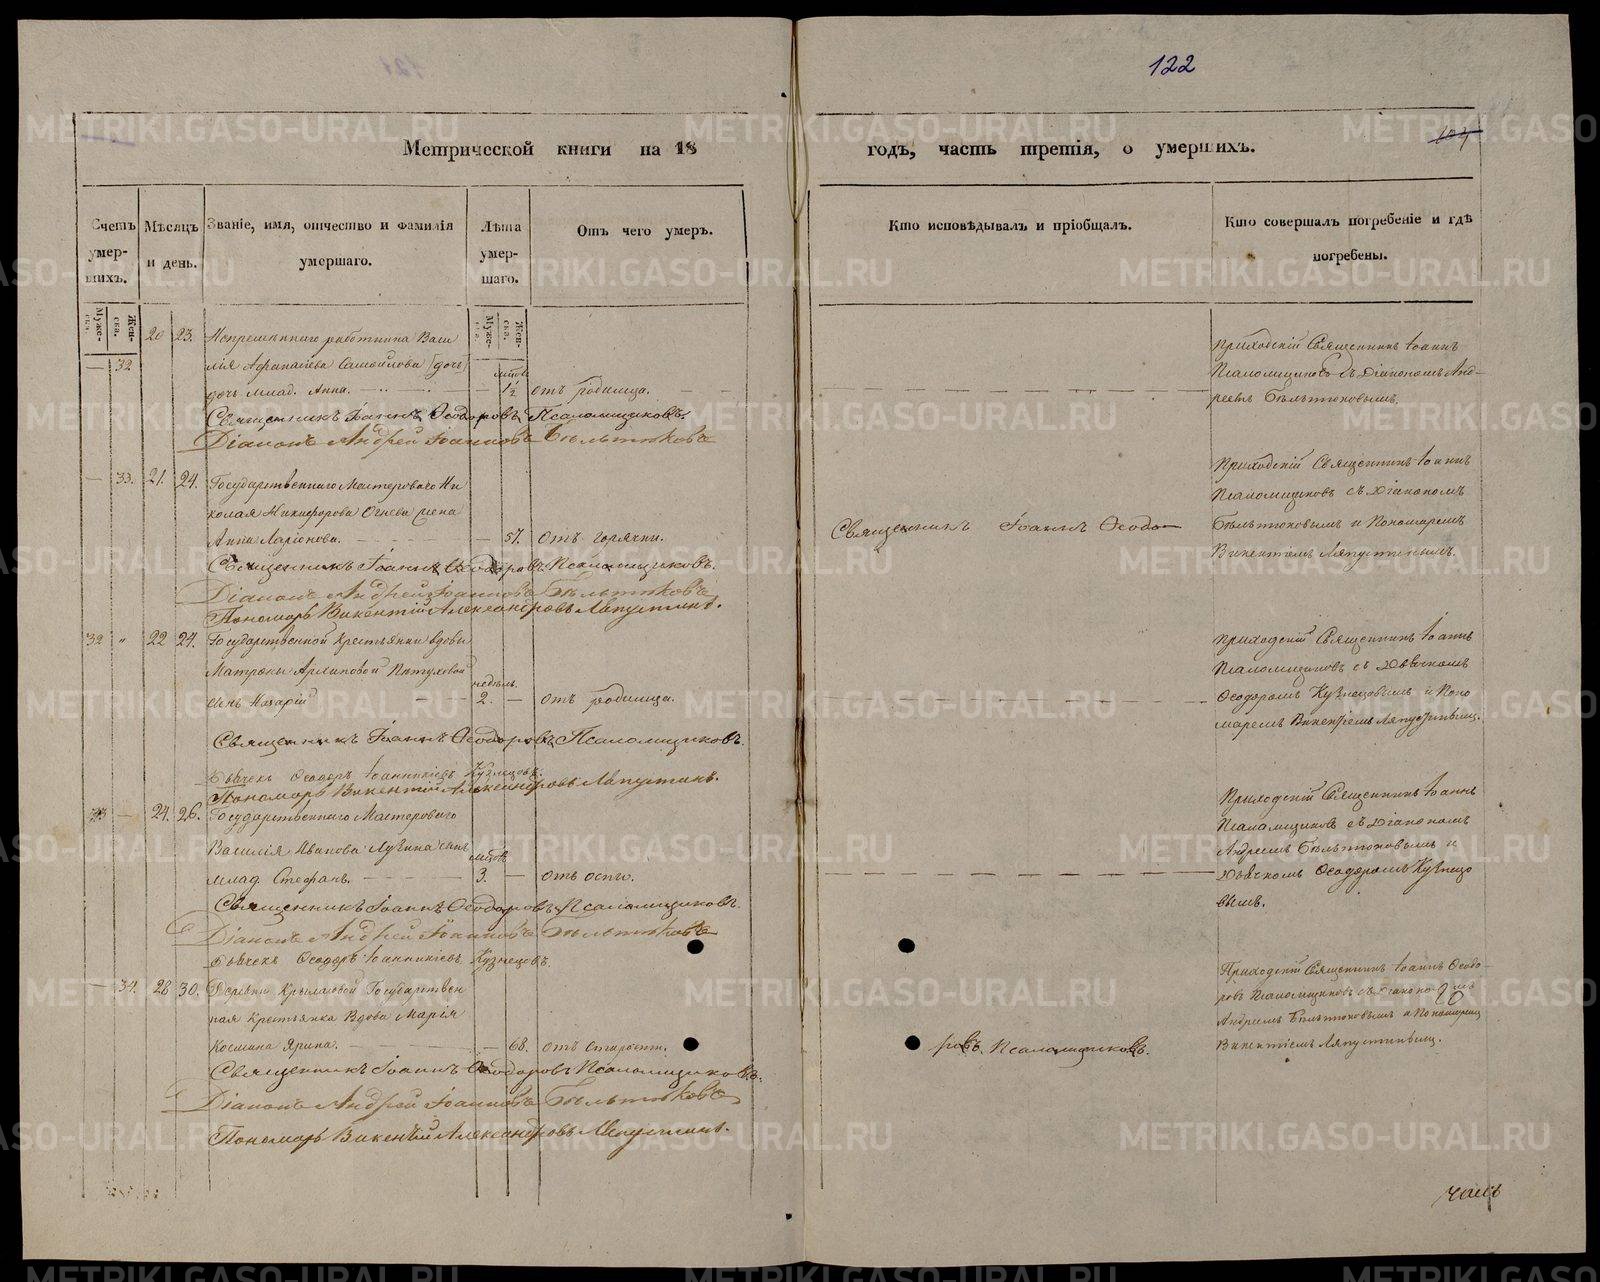 122
104
Метрической книги на 18
годъ, часть третія, о умершихъ.
Счетъ умер-шихъ.
Мѣсяцъ и день.
Званіе, имя, отчество и фамилія умершаго.
Лѣта умер-шаго.
Отъ чего умеръ.
Кто исповѣдывалъ и пріобщалъ.
Кто совершалъ погребеніе и гдѣ погребены.
Муже-ска.
Жен-ска.
Муже-ска.
Жен-ска.
— 32 20 23. Непременнаго работника Васи
лія Афанасьева Самойлова [дочь]
дочь млад. Анна. — 1½ отъ родимца.
Священникъ Іоаннъ Ѳеодоровъ Псаломщиковъ.
Діаконъ Андрей Іоанновъ Бѣльтюковъ
Приходскій Священникъ Іоаннъ
Псаломщиковъ съ Діакономъ Анд-
реемъ Бѣльтюковымъ.
— 33. 21. 24. Государственнаго Мастероваго Ни
колая Никифорова Огнева жена
Анна Ларіонова. — 57. отъ горячки.
Священникъ Іоаннъ Ѳеодоровъ Псаломщиковъ.
Діаконъ Андрей Іоанновъ Бѣльтюковъ
Пономарь Викентій Александровъ Ляпустинъ.
Священникъ Іоаннъ Ѳеодо-
Приходскій Священникъ Іоаннъ
Псаломщиковъ съ Діакономъ
Бѣльтюковымъ и Пономаремъ
Викентіемъ Ляпустинымъ.
32 „ 22 24. Государственной Крестьянки вдовы
Матроны Архиповой Пятуховой
сынъ Назарій
недѣль.
2. — отъ родимца.
Священникъ Іоаннъ Ѳеодоровъ Псаломщиковъ.
Дьячекъ Ѳеодоръ Іоанникіевъ Кузнецовъ.
Пономарь Викентій Александровъ Ляпустинъ.
Приходскій Священникъ Іоаннъ
Псаломщиковъ съ Дьячкомъ
Ѳеодоромъ Кузнецовымъ и Поно
маремъ Викентіемъ Ляпустинымъ.
33 — 24. 26. Государственнаго Мастероваго
Василія Иванова Лузина сынъ
млад. Стефанъ.
лѣтъ
3. — отъ оспы.
Священникъ Іоаннъ Ѳеодоровъ Псаломщиковъ.
Діаконъ Андрей Іоанновъ Бѣльтюковъ
Дьячекъ Ѳеодоръ Іоанникіевъ Кузнецовъ.
Приходскій Священникъ Іоаннъ
Псаломщиковъ съ Діакономъ
Андреемъ Бѣльтюковымъ и
Дьячкомъ Ѳеодоромъ Кузнецо
вымъ.
— 34. 28 30. Деревни Крылатовой Государствен
ная Крестьянка Вдова Марія
Космина Ярина. — 68. отъ старости.
Священникъ Іоаннъ Ѳеодоровъ Псаломщиковъ.
Діаконъ Андрей Іоанновъ Бѣльтюковъ
Пономарь Викентій Александровъ Ляпустинъ.
ровъ Псаломщиковъ.
Приходскій Священникъ Іоаннъ Ѳеодо-
ровъ Псаломщиковъ съ Діакономъ
Андреемъ Бѣльтюковымъ и Пономаремъ
Викентіемъ Ляпустинымъ.
20
часъ
METRIKI.GASO-URAL.RU